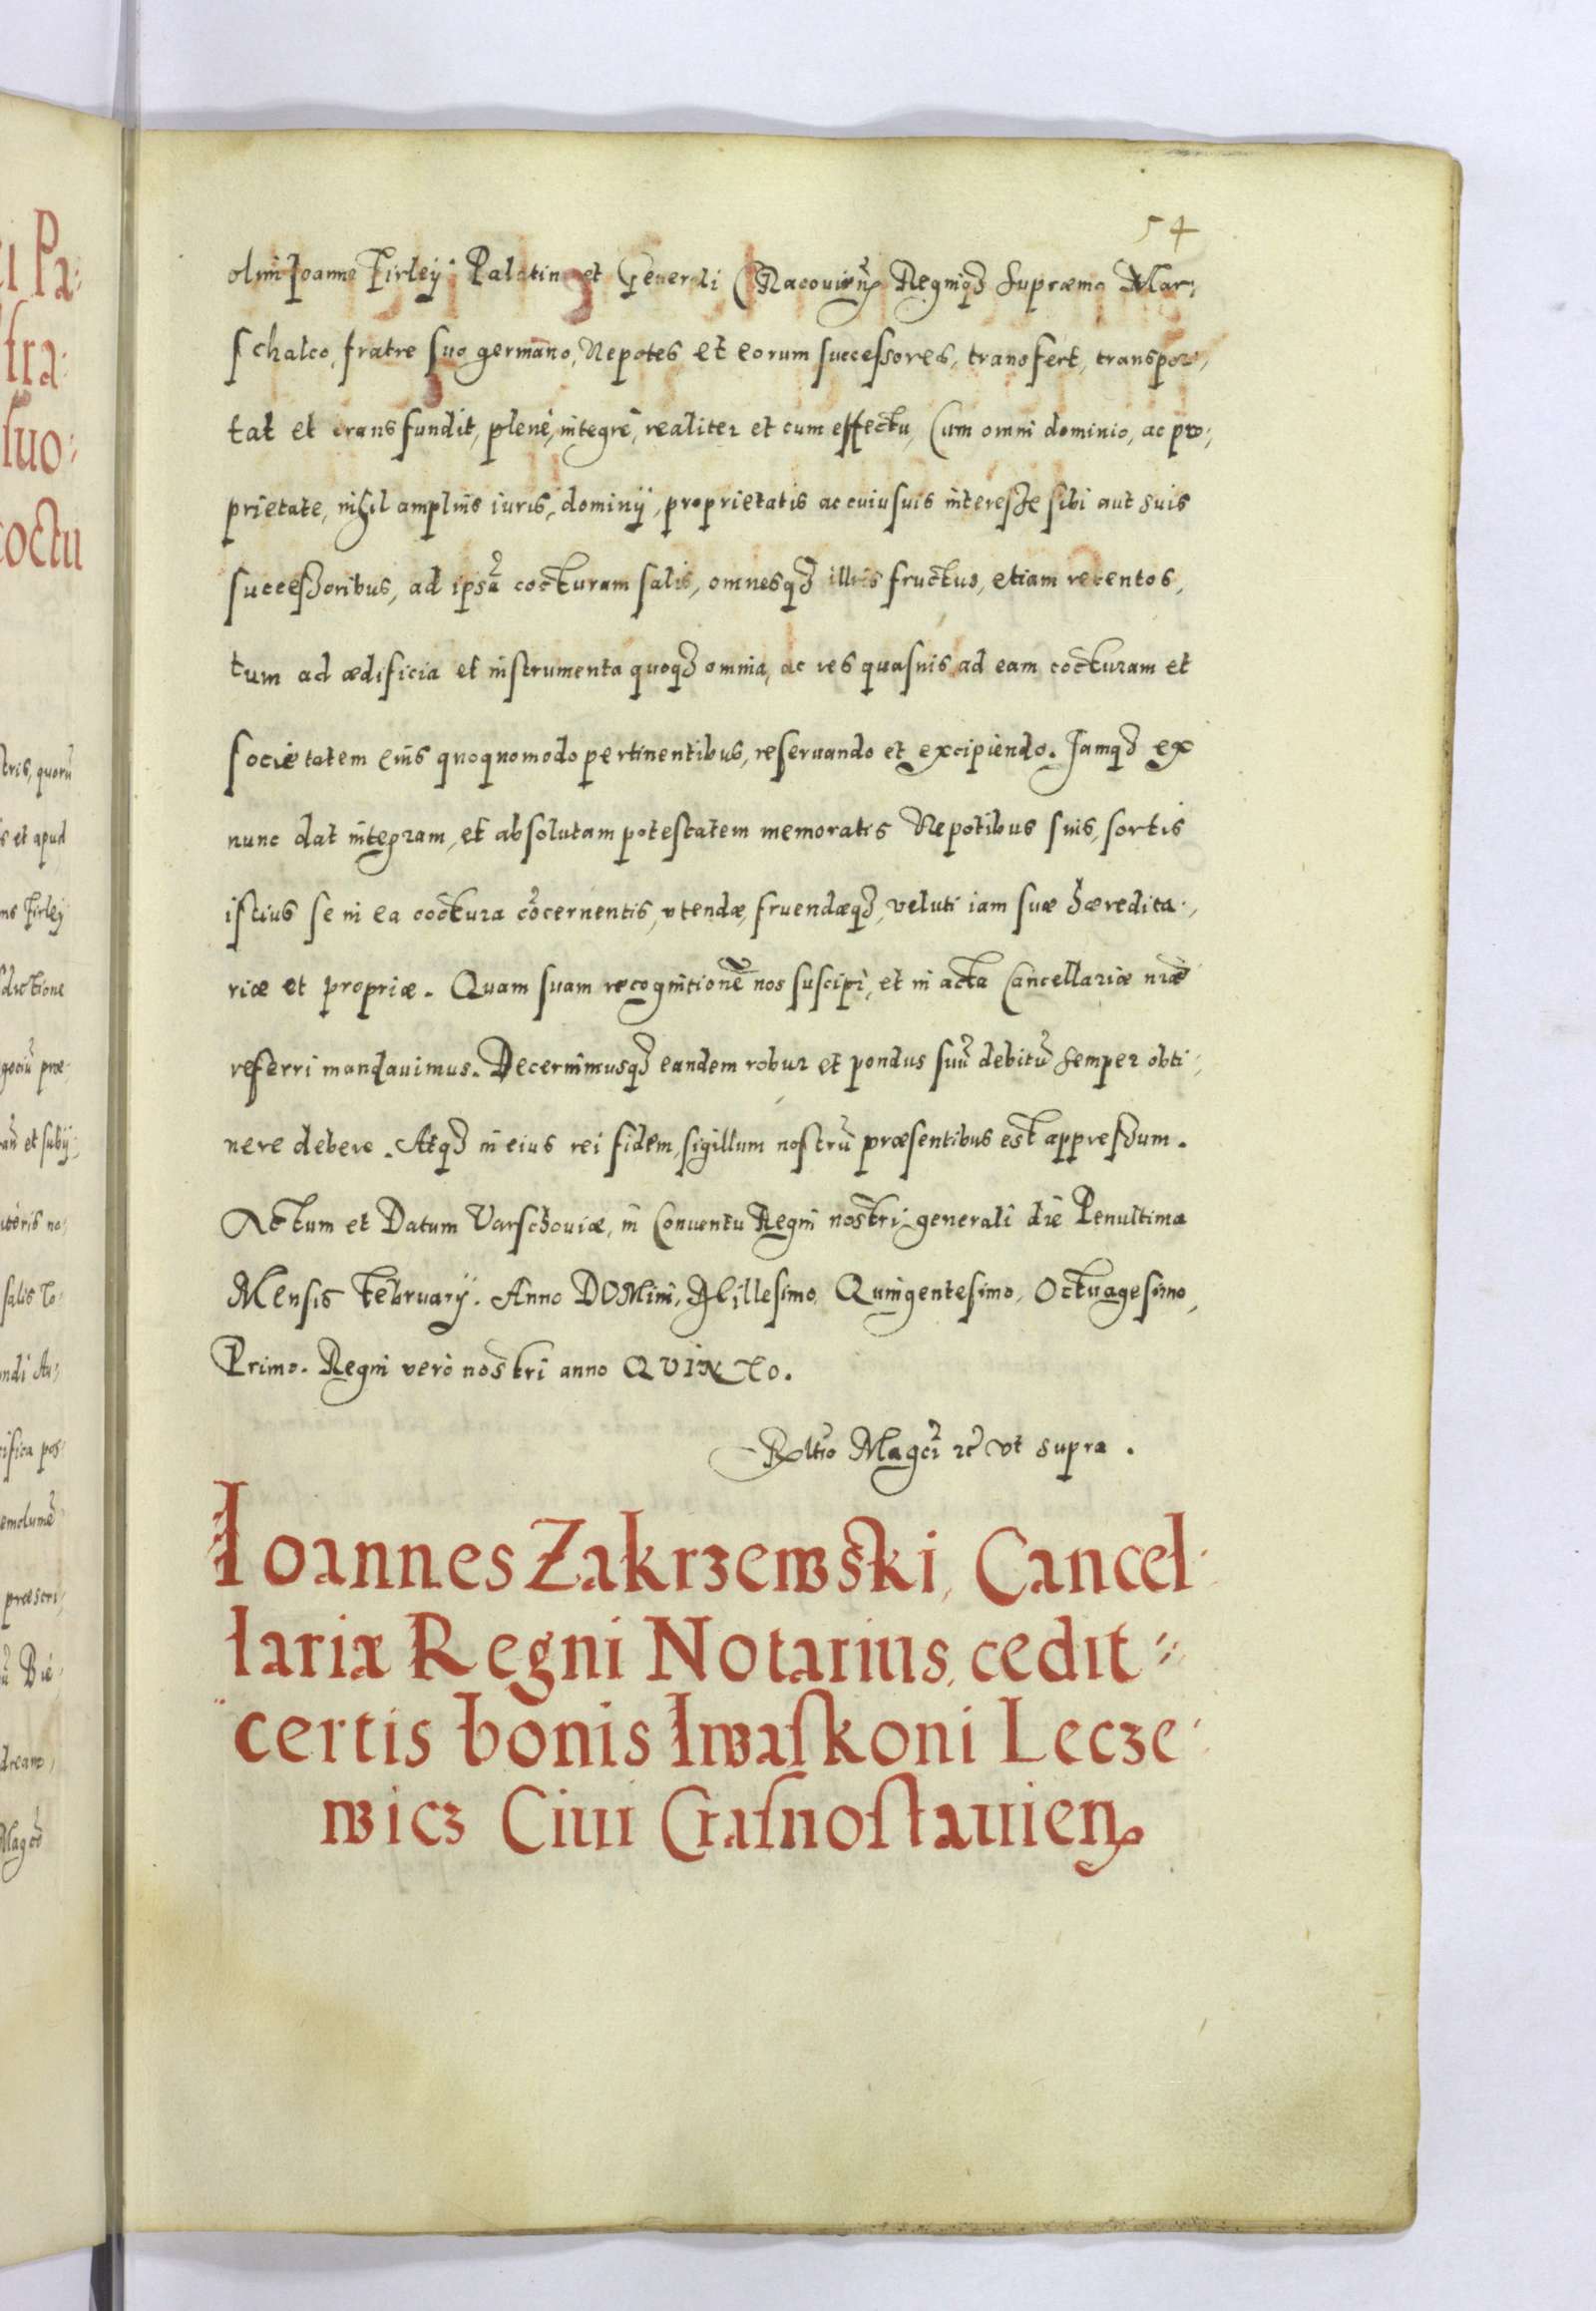 54
olim Joanne Firleÿ Palatino et Generali Cracouieñ Regniqȝ supræmo Mar,
schalco, fratre suo germano, Nepotes et eorum successores, transfert, transpor,
tat et transfundit, plenè, integrè, realiter et cum effectu, Cum omni dominio, ac pro,
prietate, nihil amplius iuris, dominij, proprietatis ac cuiusuis interesse sibi aut suis
successoribus, ad ipsã cocturam salis, omnesqȝ illius fructus, etiam recentes,
tum ad ædificia et instrumenta quoqȝ omnia, ac res quasuis ad eam cocturam et
societatem eius quoquomodo pertinentibus, reseruando et excipiendo. Jamqȝ ex
nunc dat integram, et absolutam potestatem memoratis Nepotibus suis, sortis
istius se in ea coctura cõcernentis, vtendæ, fruendæqȝ, veluti iam suæ hæredita,
riæ et propriæ. Quam suam recognitionẽ nos suscipi, et in acta Cancellariæ nræ
referri mandauimus. Decernimusqȝ eandem robur et pondus suũ debitũ semper obti,
nere debere. Atqȝ in eius rei fidem, sigillum nostrũ præsentibus est appressum.
Actum et Datum Varschouiæ, in Conuentu Regni nostri generali die Penultima
Mensis Februarij. Anno DOMini, Millesimo, Quingentesimo, Octuagesimo,
Primo. Regni verò nostri anno QVINTo.
Rltio Magci ꝛc vt supra.
Ioannes Zakrzewski, Cancel
lariæ Regni Notarius, cedit
certis bonis Iwaſkoni Lecze
wicz Ciui Craſnoſtauieñ